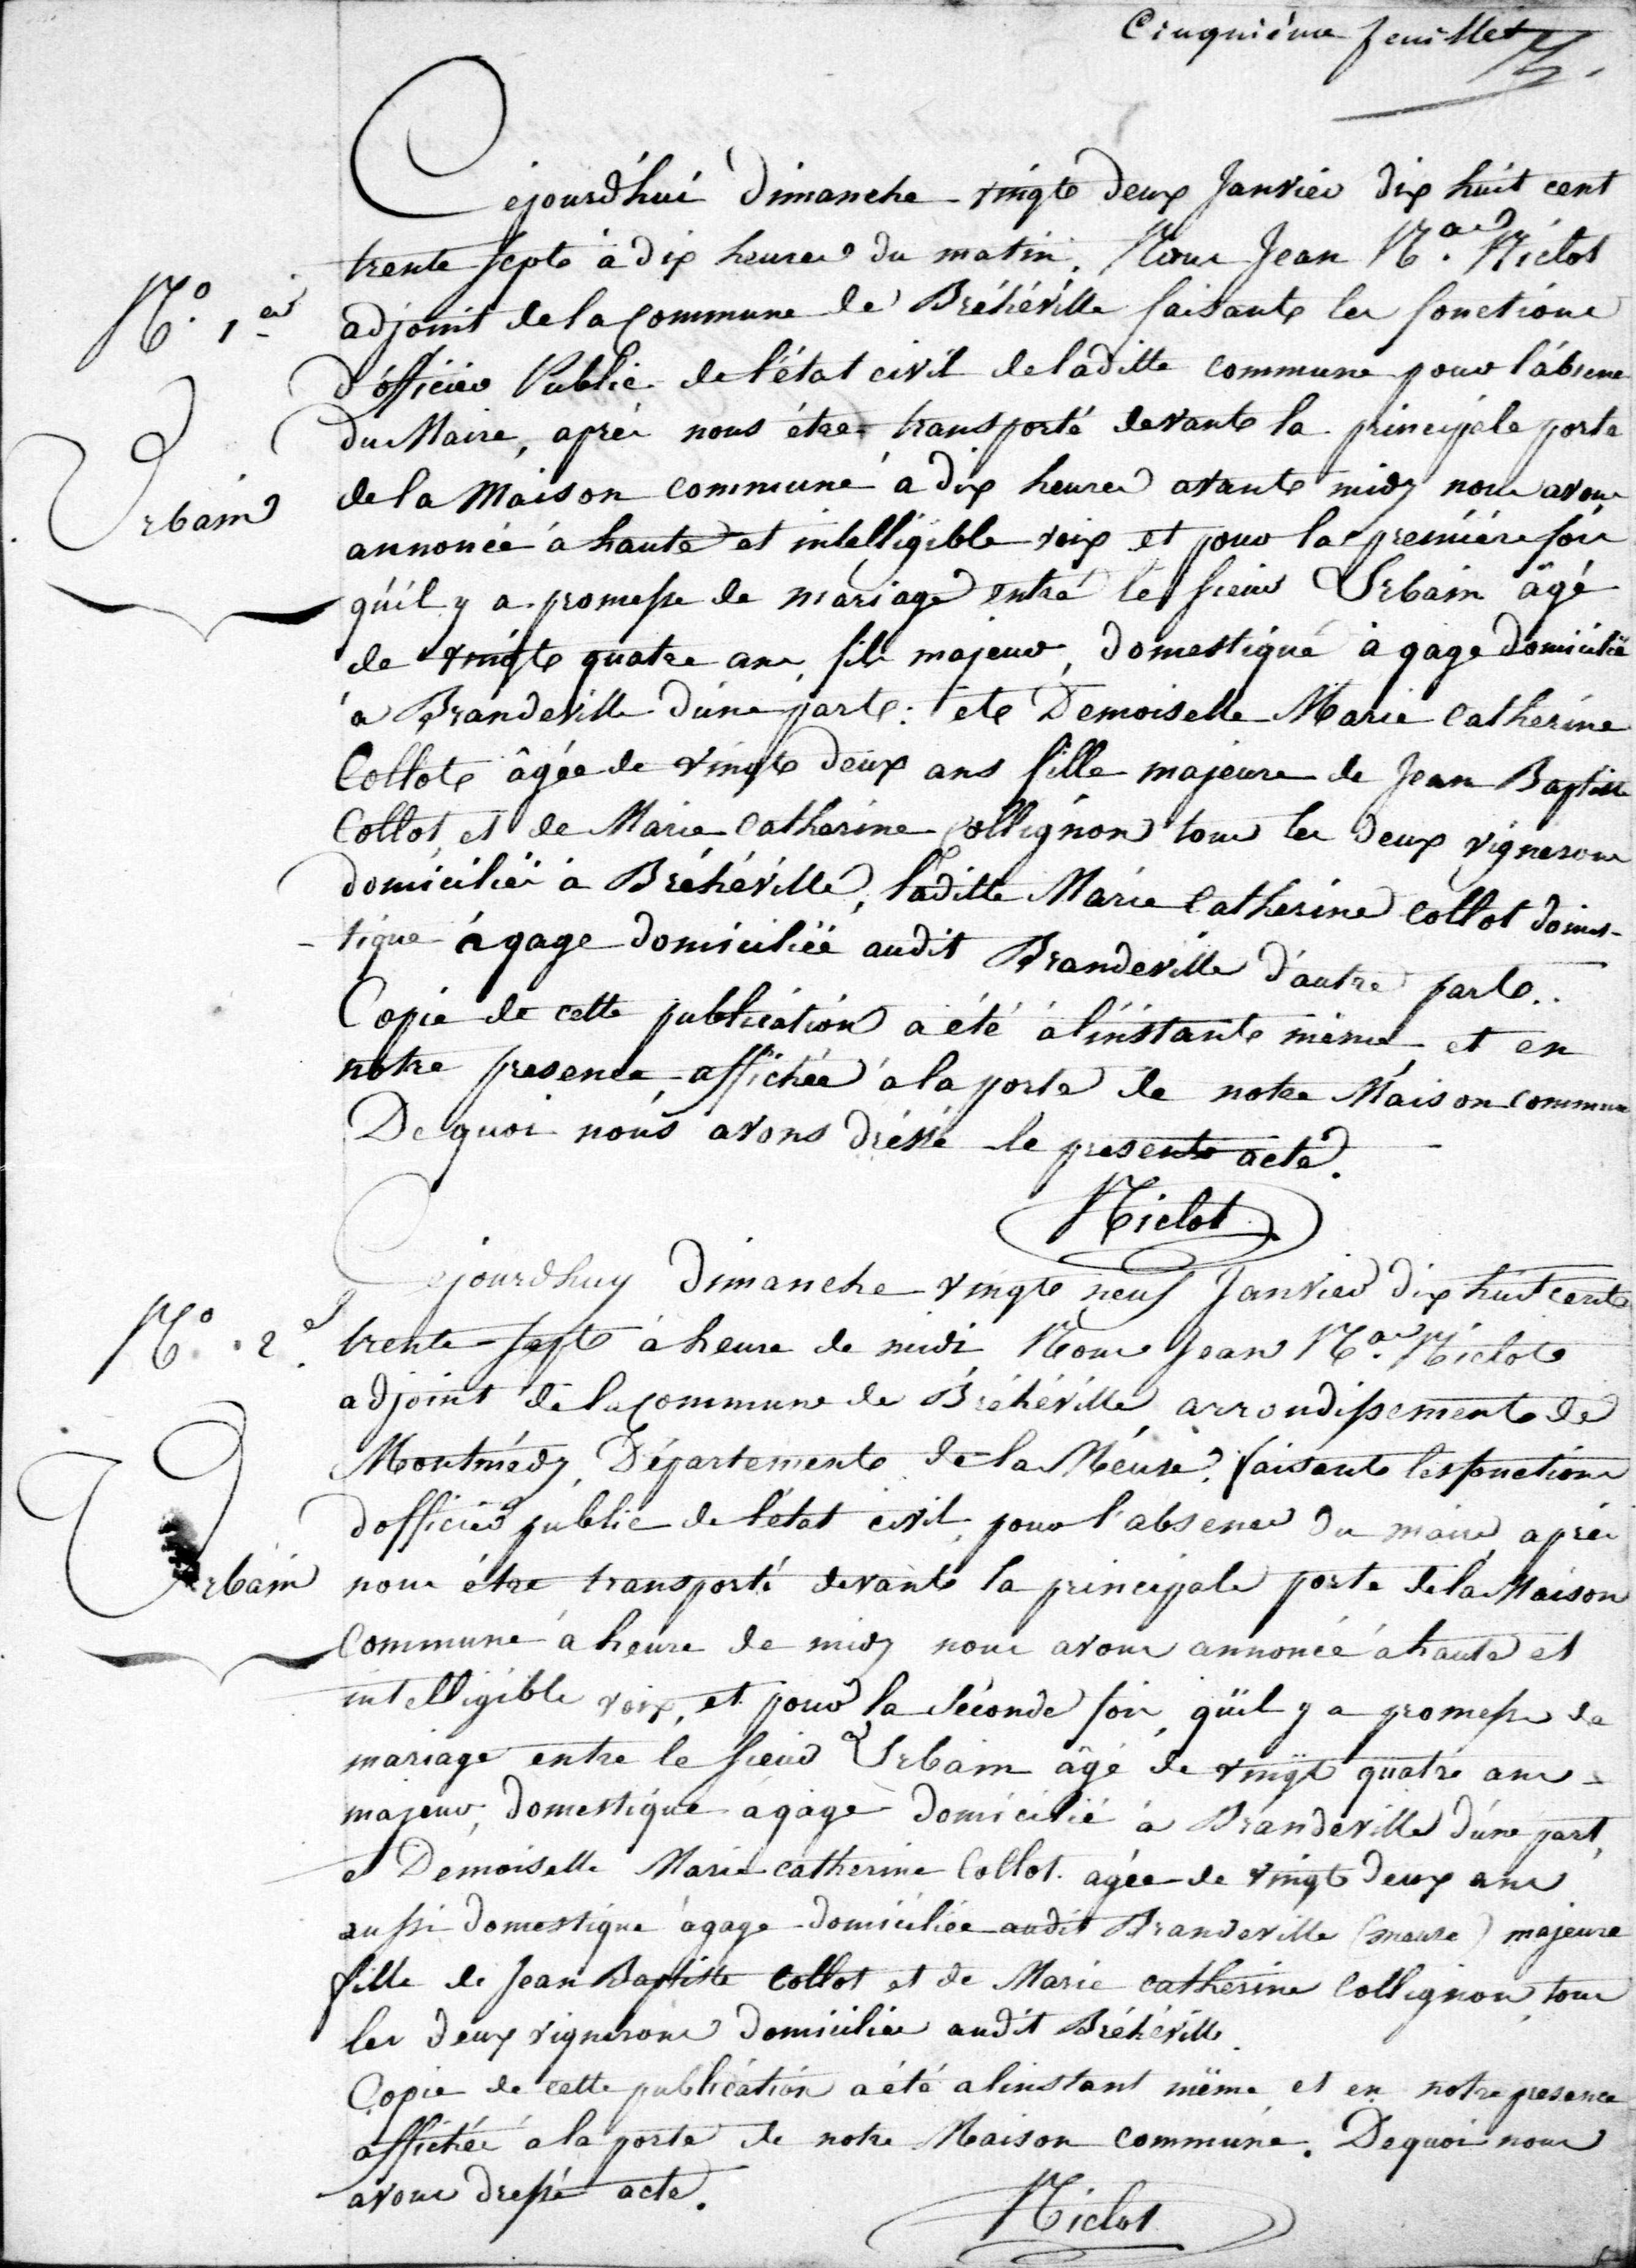 Cinquiéme feuillet
Cejourd'hui dimanche vingte deux Janvier dix huit cent
trente septe à dix heures du matin. Nous Jean Nas. Niclot
N.° 1er
adjoint de la Commune de Bréhéville faisante les fonctions
d'officier Public de l'état civil de laditte commune pour l'absence
du Maire, après nous étre transporté devante la principale porte
de la Maison commune à dix heures avante midy nous avons
Urbain
annoncée à haute et intelligible voix et pour la première fois
qu'il y a promesse de mariage entre le sieur Urbain âgé
de vingte quatre ans, fils majeur, domestique à gage domicilié
à Brandeville d'une parte: ete Demoiselle Marie Catherine
Collote âgée de vingte deux ans fille majeure de Jean Baptiste
Collot, et de Marie Catherine Collignon tous les deux vignerons
domiciliés à Bréhéville, laditte Marie Catherine Collot domes-
-tique à gage domiciliée audit Brandeville d'autre parte..
Copie de cette publication a été à l'instante même, et en
notre presence, affichée à la porte de notre Maison commune
De quoi nous avons dressé le presente acte.
Niclot
Cejourdhuy Dimanche vingte neuf Janvier dix huit cente
N.° 2e.
trente septe à heure de midi Nous Jean Nas. Niclote
adjoint de la Commune de Bréhéville arrondissemente de
Montmédy, Départemente de la Meuse, faisante les fonctions
d'officier public de l'état civil, pour l'absence du maire, après
Urbain
nous étre transporté devante la principale porte de la Maison
Commune à heure de midy nous avons annoncée à haute et
intelligible voix, et pour la séconde fois, qu'il y a promesse de
mariage entre le sieur Urbain âgé de vingt quatre ans
majeur, domestique à gage domicilié à Brandeville d'une part,
et Démoiselle Marie catherine Collot. agée de vingte deux ans
aussi domestique à gage domiciliée audit Brandeville (meuse) majeure
fille de Jean Baptiste Collot et de Marie catherine Collignon, tous
les deux vignerons domiciliés audit Bréhéville.
Copie de cette publication a été a linstant même et en notre presence
affichée à la porte de notre Maison commune. De quoi nous
avons dressé acte.
Niclot